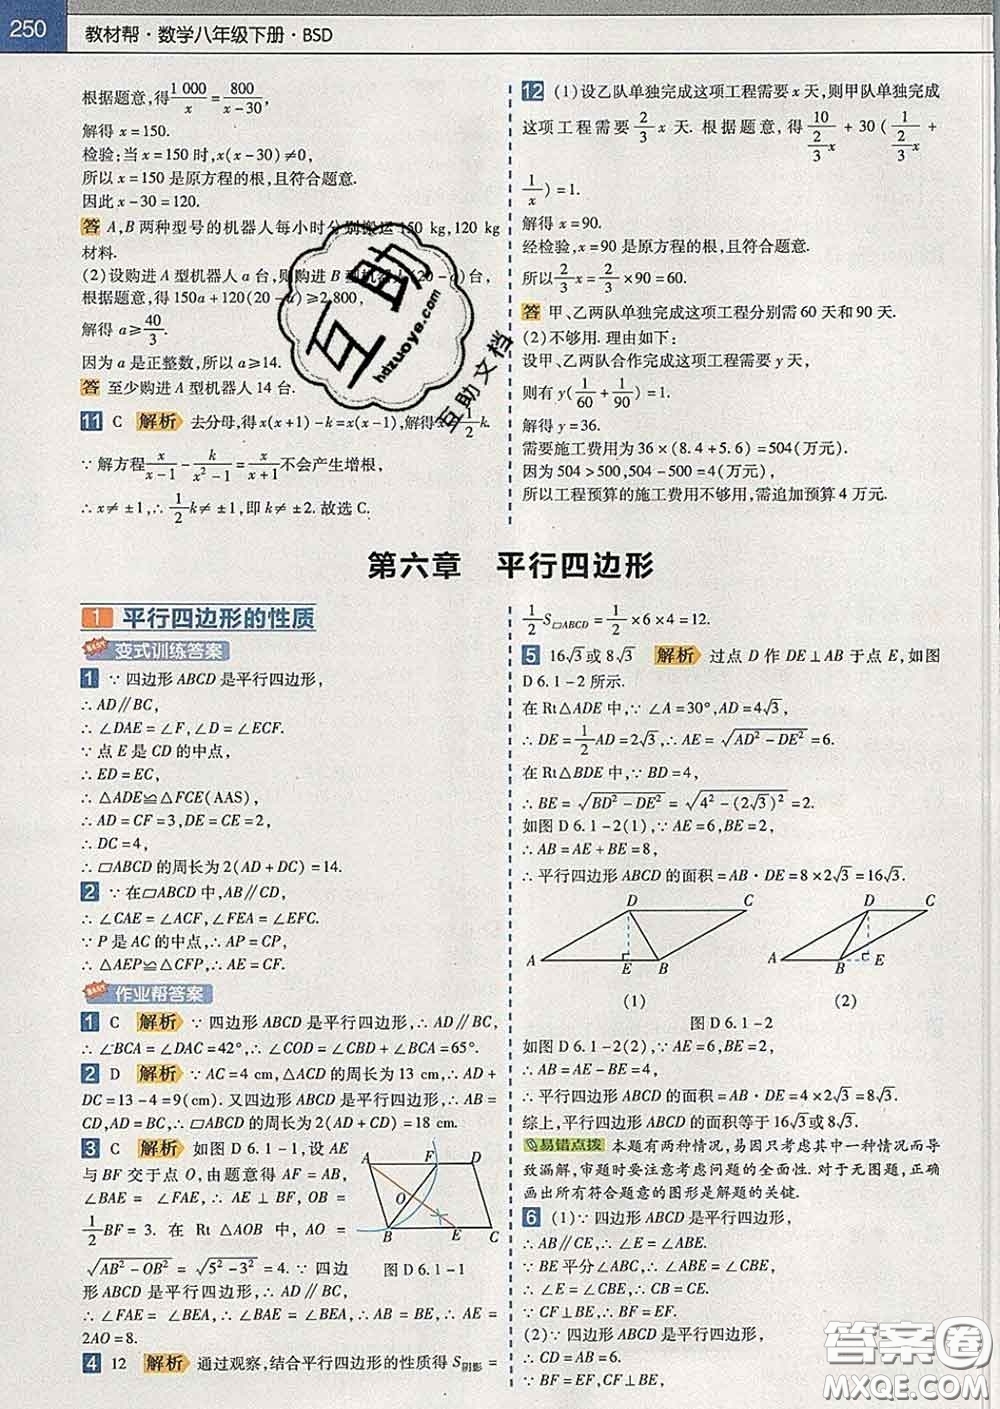 250
教材帮·数学八年级下册·BSD
根据题意,得1 000/x=800/(x-30),
解得 x=150.
检验:当 x=150 时,x(x-30)≠0,
所以 x=150 是原方程的根,且符合题意.
因此 x-30=120.
答 A,B 两种型号的机器人每小时分别搬运 150 kg,120 kg
材料.
(2)设购进 A 型机器人 a 台,则购进 B 型机器人(20-a)台,
根据题意,得 150a+120(20-a)≥2 800,
解得 a≥40/3.
因为 a 是正整数,所以 a≥14.
答 至少购进 A 型机器人 14 台.
11 C 解析 去分母,得 x(x+1)-k=x(x-1),解得 x=1/2k.
∵解方程x/(x-1)-k/(x²-1)=x/(x+1)不会产生增根,
∴x≠±1,∴1/2k≠±1,即 k≠±2.故选 C.
12 (1)设乙队单独完成这项工程需要 x 天,则甲队单独完成
这项工程需要2/3x 天. 根据题意,得10/(2/3x)+30(1/(2/3x)+
1/x)=1.
解得 x=90.
经检验,x=90 是原方程的根,且符合题意.
所以2/3x=2/3×90=60.
答 甲、乙两队单独完成这项工程分别需 60 天和 90 天.
(2)不够用. 理由如下:
设甲、乙两队合作完成这项工程需要 y 天,
则有 y(1/60+1/90)=1.
解得 y=36.
需要施工费用为 36×(8.4+5.6)=504(万元).
因为 504>500,504-500=4(万元),
所以工程预算的施工费用不够用,需追加预算 4 万元.
第六章 平行四边形
1 平行四边形的性质
变式训练答案
1 ∵四边形 ABCD 是平行四边形,
∴AD∥BC,
∴∠DAE=∠F,∠D=∠ECF.
∵点 E 是 CD 的中点,
∴ED=EC,
∴△ADE≌△FCE(AAS),
∴AD=CF=3,DE=CE=2,
∴DC=4,
∴▱ABCD 的周长为 2(AD+DC)=14.
2 ∵在▱ABCD 中,AB∥CD,
∴∠CAE=∠ACF,∠FEA=∠EFC.
∵P 是 AC 的中点,∴AP=CP,
∴△AEP≌△CFP,∴AE=CF.
作业帮答案
1 C 解析 ∵四边形 ABCD 是平行四边形,∴AD∥BC,
∴∠BCA=∠DAC=42°,∴∠COD=∠CBD+∠BCA=65°.
2 D 解析 ∵AC=4 cm,△ACD 的周长为 13 cm,∴AD+
DC=13-4=9(cm). 又四边形 ABCD 是平行四边形,∴AB=
CD,AD=BC,∴▱ABCD 的周长为 2(AD+CD)=18 cm.
3 C 解析 如图 D 6.1-1,设 AE
与 BF 交于点 O,由题意得 AF=AB,
∠BAE=∠FAE,∴AE⊥BF,OB=
1/2BF=3. 在 Rt△AOB 中,AO=
√(AB²-OB²)=√(5²-3²)=4.∵四边
形 ABCD 是平行四边形,∴AF∥BE,
∴∠FAE=∠BEA,∴∠BAE=∠BEA,∴AB=BE,∴AE=
2AO=8.
A F D
O
B E C
图 D 6.1-1
4 12 解析 通过观察,结合平行四边形的性质得 S阴影=
1/2S▱ABCD=1/2×6×4=12.
5 16√3或 8√3 解析 过点 D 作 DE⊥AB 于点 E,如图
D 6.1-2 所示.
在 Rt△ADE 中,∵∠A=30°,AD=4√3,
∴DE=1/2AD=2√3,∴AE=√(AD²-DE²)=6.
在 Rt△BDE 中,∵BD=4,
∴BE=√(BD²-DE²)=√(4²-(2√3)²)=2.
如图 D 6.1-2(1),∵AE=6,BE=2,
∴AB=AE+BE=8,
∴平行四边形 ABCD 的面积=AB·DE=8×2√3=16√3.
D C D C
A E B A B E
(1) (2)
图 D 6.1-2
如图 D 6.1-2(2),∵AE=6,BE=2,
∴AB=AE-BE=4,
∴平行四边形 ABCD 的面积=AB·DE=4×2√3=8√3.
综上,平行四边形 ABCD 的面积等于 16√3或 8√3.
易错点拨 本题有两种情况,易因只考虑其中一种情况而导
致漏解,审题时要注意考虑问题的全面性. 对于无图题,正确
画出所有符合题意的图形是解题的关键.
6 (1)∵四边形 ABCD 是平行四边形,
∴AB∥CE,∴∠E=∠ABE.
∵BE 平分∠ABC,∴∠ABE=∠CBE,
∴∠E=∠CBE,∴CB=CE.
∵CF⊥BE,∴BF=EF.
(2)∵四边形 ABCD 是平行四边形,
∴CD=AB=6.
∵BF=EF,CF⊥BE,
互助
hdzuoye.com
互助文档
答案圈
MXQE.COM